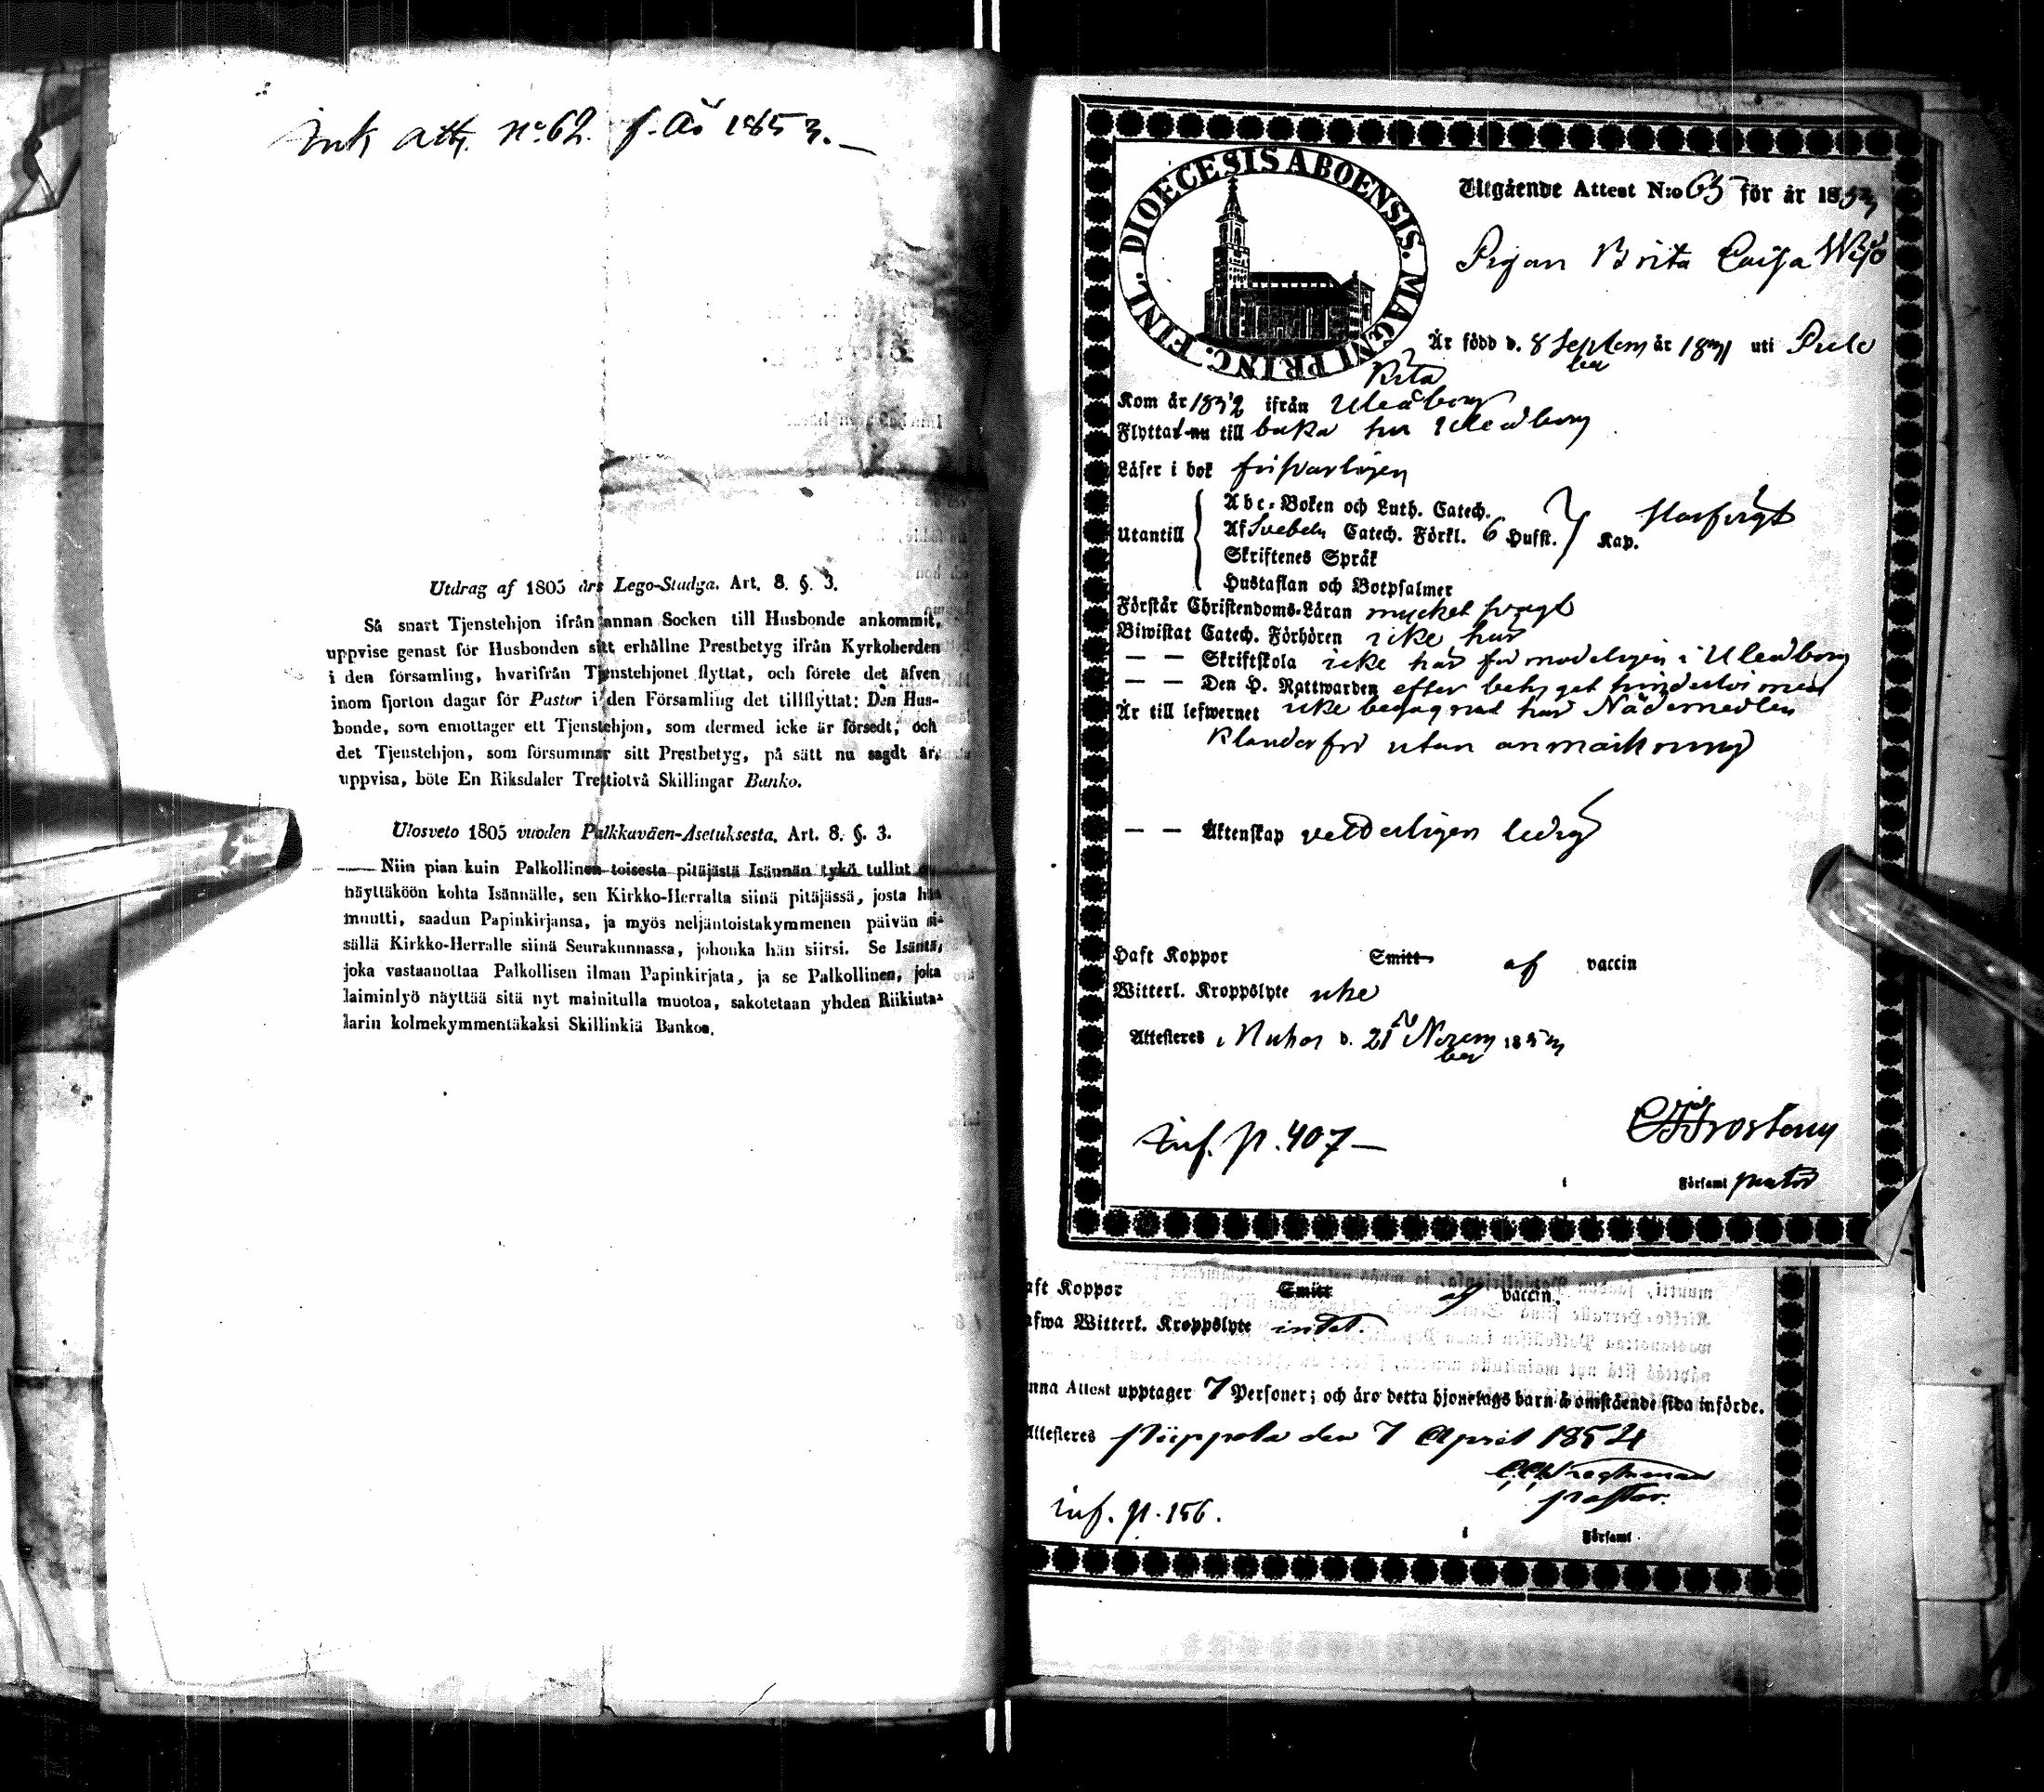 Ink att. No 62. f. År 1853.
Utdrag af 1805 års Lego-Stadga. Art. 8. §. 3.
Så snart Tjenstehjon ifrån annan Socken till Husbonde ankommit,
uppvise genast för Husbonden sitt erhållne Prestbetyg ifrån Kyrkoherden
i den församling, hvarifrån Tjenstehjonet flyttat, och förete det äfven
inom fjorton dagar för Pastor i den Församling det tillflyttat: Den Hus-
bonde, som emottager ett Tjenstehjon, som dermed icke är försedt, och
det Tjenstehjon, som försummar sitt Prestbetyg, på sätt nu sagdt är,
uppvisa, böte En Riksdaler Trettiotvå Skillingar Banko.
Ulosveto 1805 vuoden Palkkaväen-Asetuksesta. Art. 8. §. 3.
Niin pian kuin Palkollinen toisesta pitäjästä Isännän tykö tullut
näyttäköön kohta Isännälle, sen Kirkko-Herralta siinä pitäjässä, josta hän
muutti, saadun Papinkirjansa, ja myös neljäntoistakymmenen päivän si-
sällä Kirkko-Herralle siinä Seurakunnassa, johonka hän siirsi. Se Isäntä,
joka vastaanottaa Palkollisen ilman Papinkirjata, ja se Palkollinen, joka
laiminlyö näyttää sitä nyt mainitulla muotoa, sakotetaan yhden Riikinta-
larin kolmekymmentäkaksi Skillinkiä Bankoa.
DIOECESIS ABOENSIS. MAGNI PRINC. FINL.
Utgående Attest N:o 63 för år 1853
Pigan Brita Caisa Wijö
Är född d. 8 September år 18 uti
Kom år 1832 ifrån Uleåborg
Flyttar nu till baka Uleåborg
Läser i bok försvarligen
Utantill
Abc-Boken och Luth. Catech.
Af Svebelii Catech. Förkl. 6 Hufst. Kap.
Skriftenes Språk
Hustaflan och Botpsalmer
Förstår Christendoms-Läran mycket svagt
Biwistat Catech. Förhören icke här
— — Skriftskola icke här i Uleåborg
— — Den H. Nattwarden efter betyget
Är till lefwernet icke begagnat här Nådemedlen
Klanderfri utan anmärkning
— — Äktenskap veterligen ledig
Haft Koppor Smitt af vaccin
Witterl. Kroppslyte icke
Attesteres i Muhos d. 21 November 1853
Inf. p. 407
C Frosterus
Församl pastor
aft Koppor Smitt af vaccin.
afwa Witterl. Kroppslyte intet.
nna Attest upptager 7 Personer; och äro detta hjonelags barn å omstående sida införde.
Attesteres Piippola den 7 April 1854
pastor.
inf. p. 156.
Församl